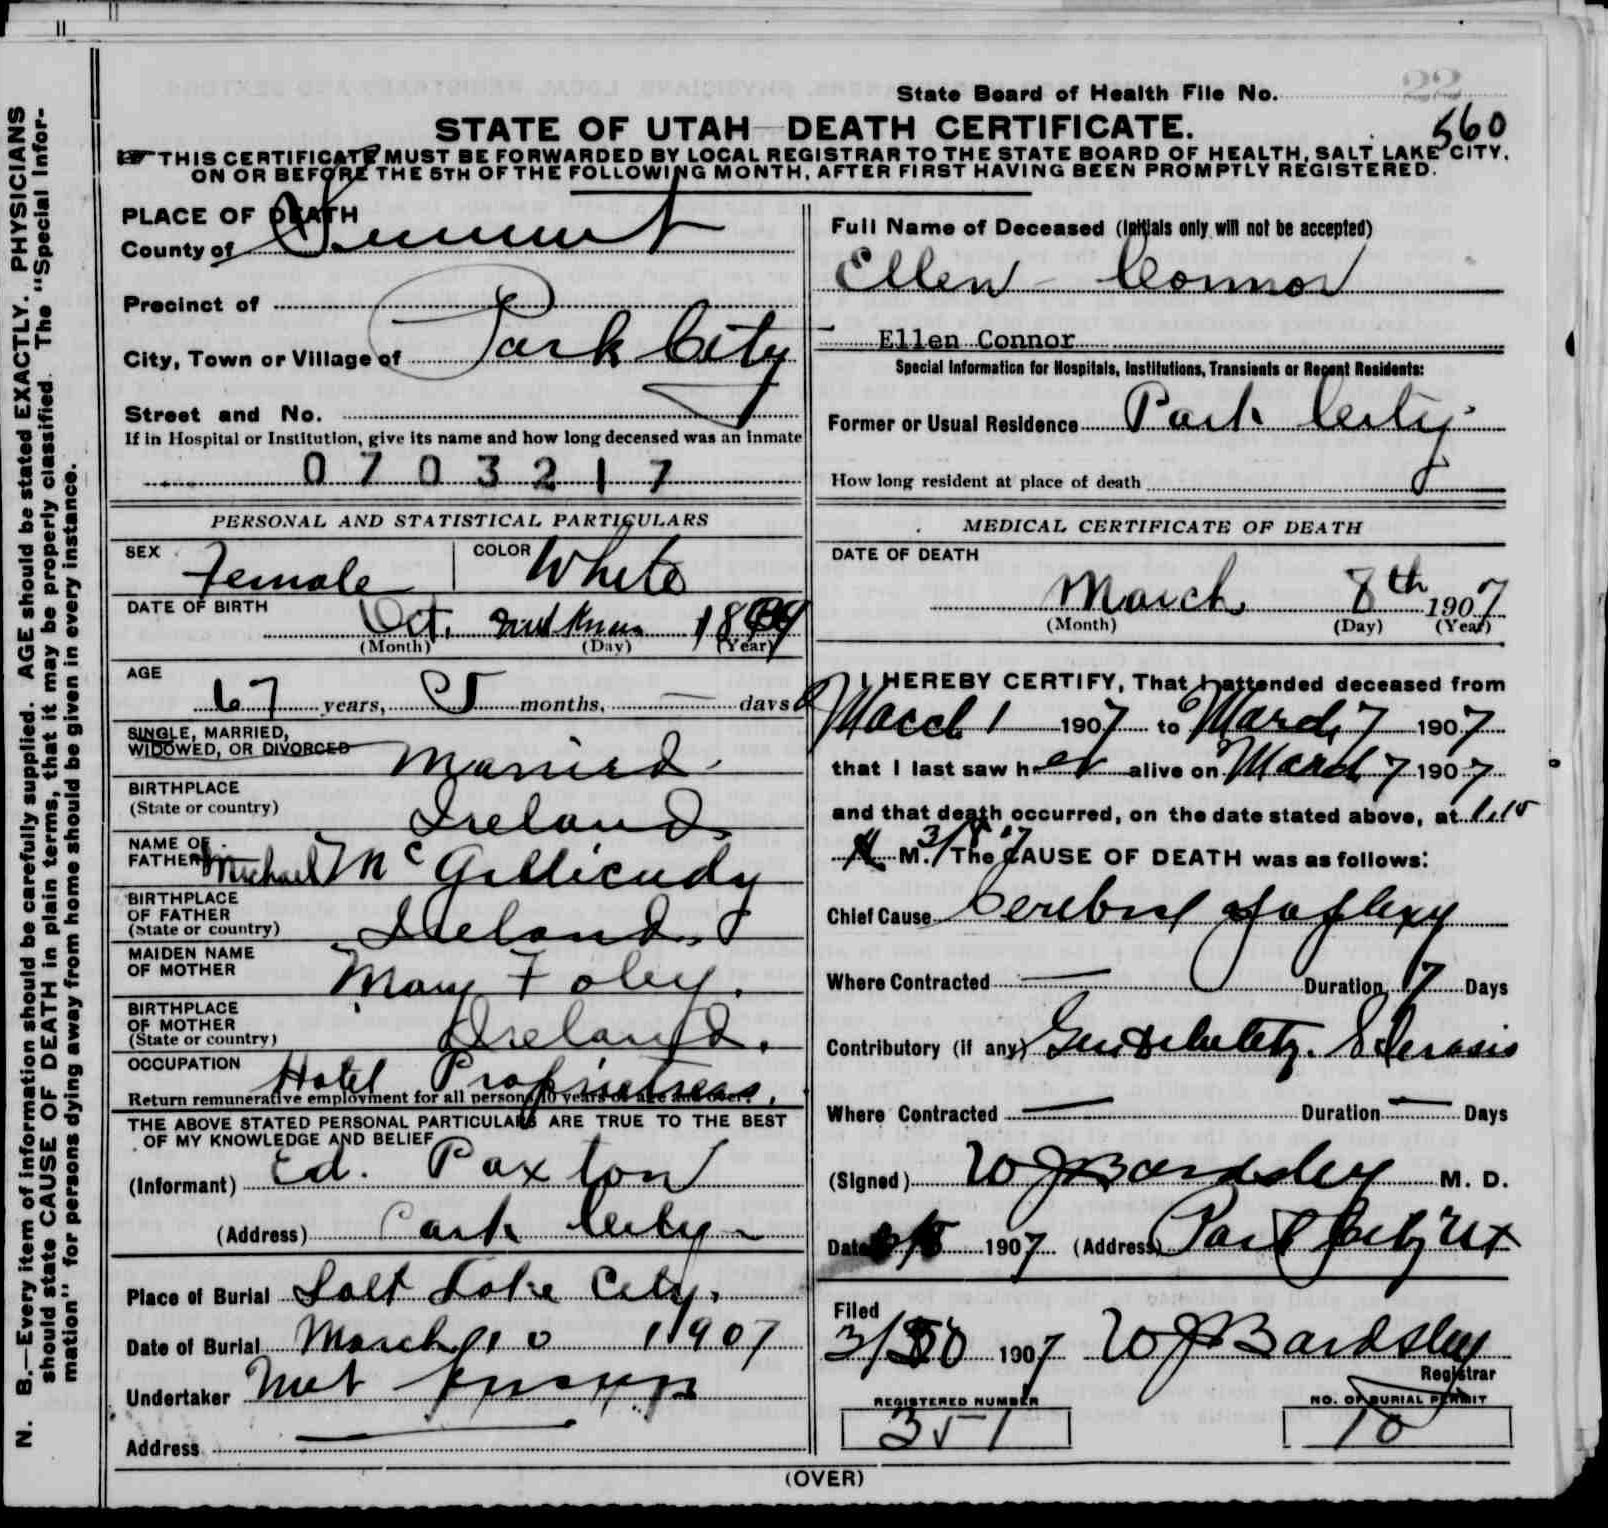 22
State Board of Health File No.
560
STATE OF UTAH—DEATH CERTIFICATE.
THIS CERTIFICATE MUST BE FORWARDED BY LOCAL REGISTRAR TO THE STATE BOARD OF HEALTH, SALT LAKE CITY,
ON OR BEFORE THE 5TH OF THE FOLLOWING MONTH, AFTER FIRST HAVING BEEN PROMPTLY REGISTERED.
N. B.—Every item of information should be carefully supplied. AGE should be stated EXACTLY. PHYSICIANS
should state CAUSE OF DEATH in plain terms, that it may be properly classified. The "Special Infor-
mation" for persons dying away from home should be given in every instance.
PLACE OF DEATH
County of Summit
Precinct of
City, Town or Village of Park City
Street and No.
If in Hospital or Institution, give its name and how long deceased was an inmate
0703217
PERSONAL AND STATISTICAL PARTICULARS
SEX Female COLOR White
DATE OF BIRTH
Oct.
(Month) (Day) (Year)
AGE
67 years, 5 months, — days
SINGLE, MARRIED,
WIDOWED, OR DIVORCED Married
BIRTHPLACE
(State or country) Ireland
NAME OF
FATHER Michael McGillicudy
BIRTHPLACE
OF FATHER
(State or country) Ireland
MAIDEN NAME
OF MOTHER Mary Foley.
BIRTHPLACE
OF MOTHER
(State or country) Ireland.
OCCUPATION
Hotel Proprietress.
Return remunerative employment for all persons 10 years of age and over.
THE ABOVE STATED PERSONAL PARTICULARS ARE TRUE TO THE BEST
OF MY KNOWLEDGE AND BELIEF
(Informant) Ed. Paxton
(Address) Park City
Place of Burial Salt Lake City.
Date of Burial March 10 1907
Undertaker Not Known
Address —
Full Name of Deceased (Initials only will not be accepted)
Ellen Connor
Ellen Connor
Special Information for Hospitals, Institutions, Transients or Recent Residents:
Former or Usual Residence Park City
How long resident at place of death
MEDICAL CERTIFICATE OF DEATH
DATE OF DEATH
March 8th 1907
(Month) (Day) (Year)
I HEREBY CERTIFY, That I attended deceased from
March 1 1907 to March 7 1907
that I last saw her alive on March 7 1907
and that death occurred, on the date stated above, at
M. 3/8 '7 The CAUSE OF DEATH was as follows:
Chief Cause Cerebral Apoplexy
Where Contracted — Duration 7 Days
Contributory (if any) Gen Debility. Sclerosis
Where Contracted — Duration — Days
(Signed) W J Bardsley M. D.
Date 3/8 1907 (Address) Park City Ut
Filed
3/ 1907 W J Bardsley
Registrar
REGISTERED NUMBER
351
NO. OF BURIAL PERMIT
10
(OVER)